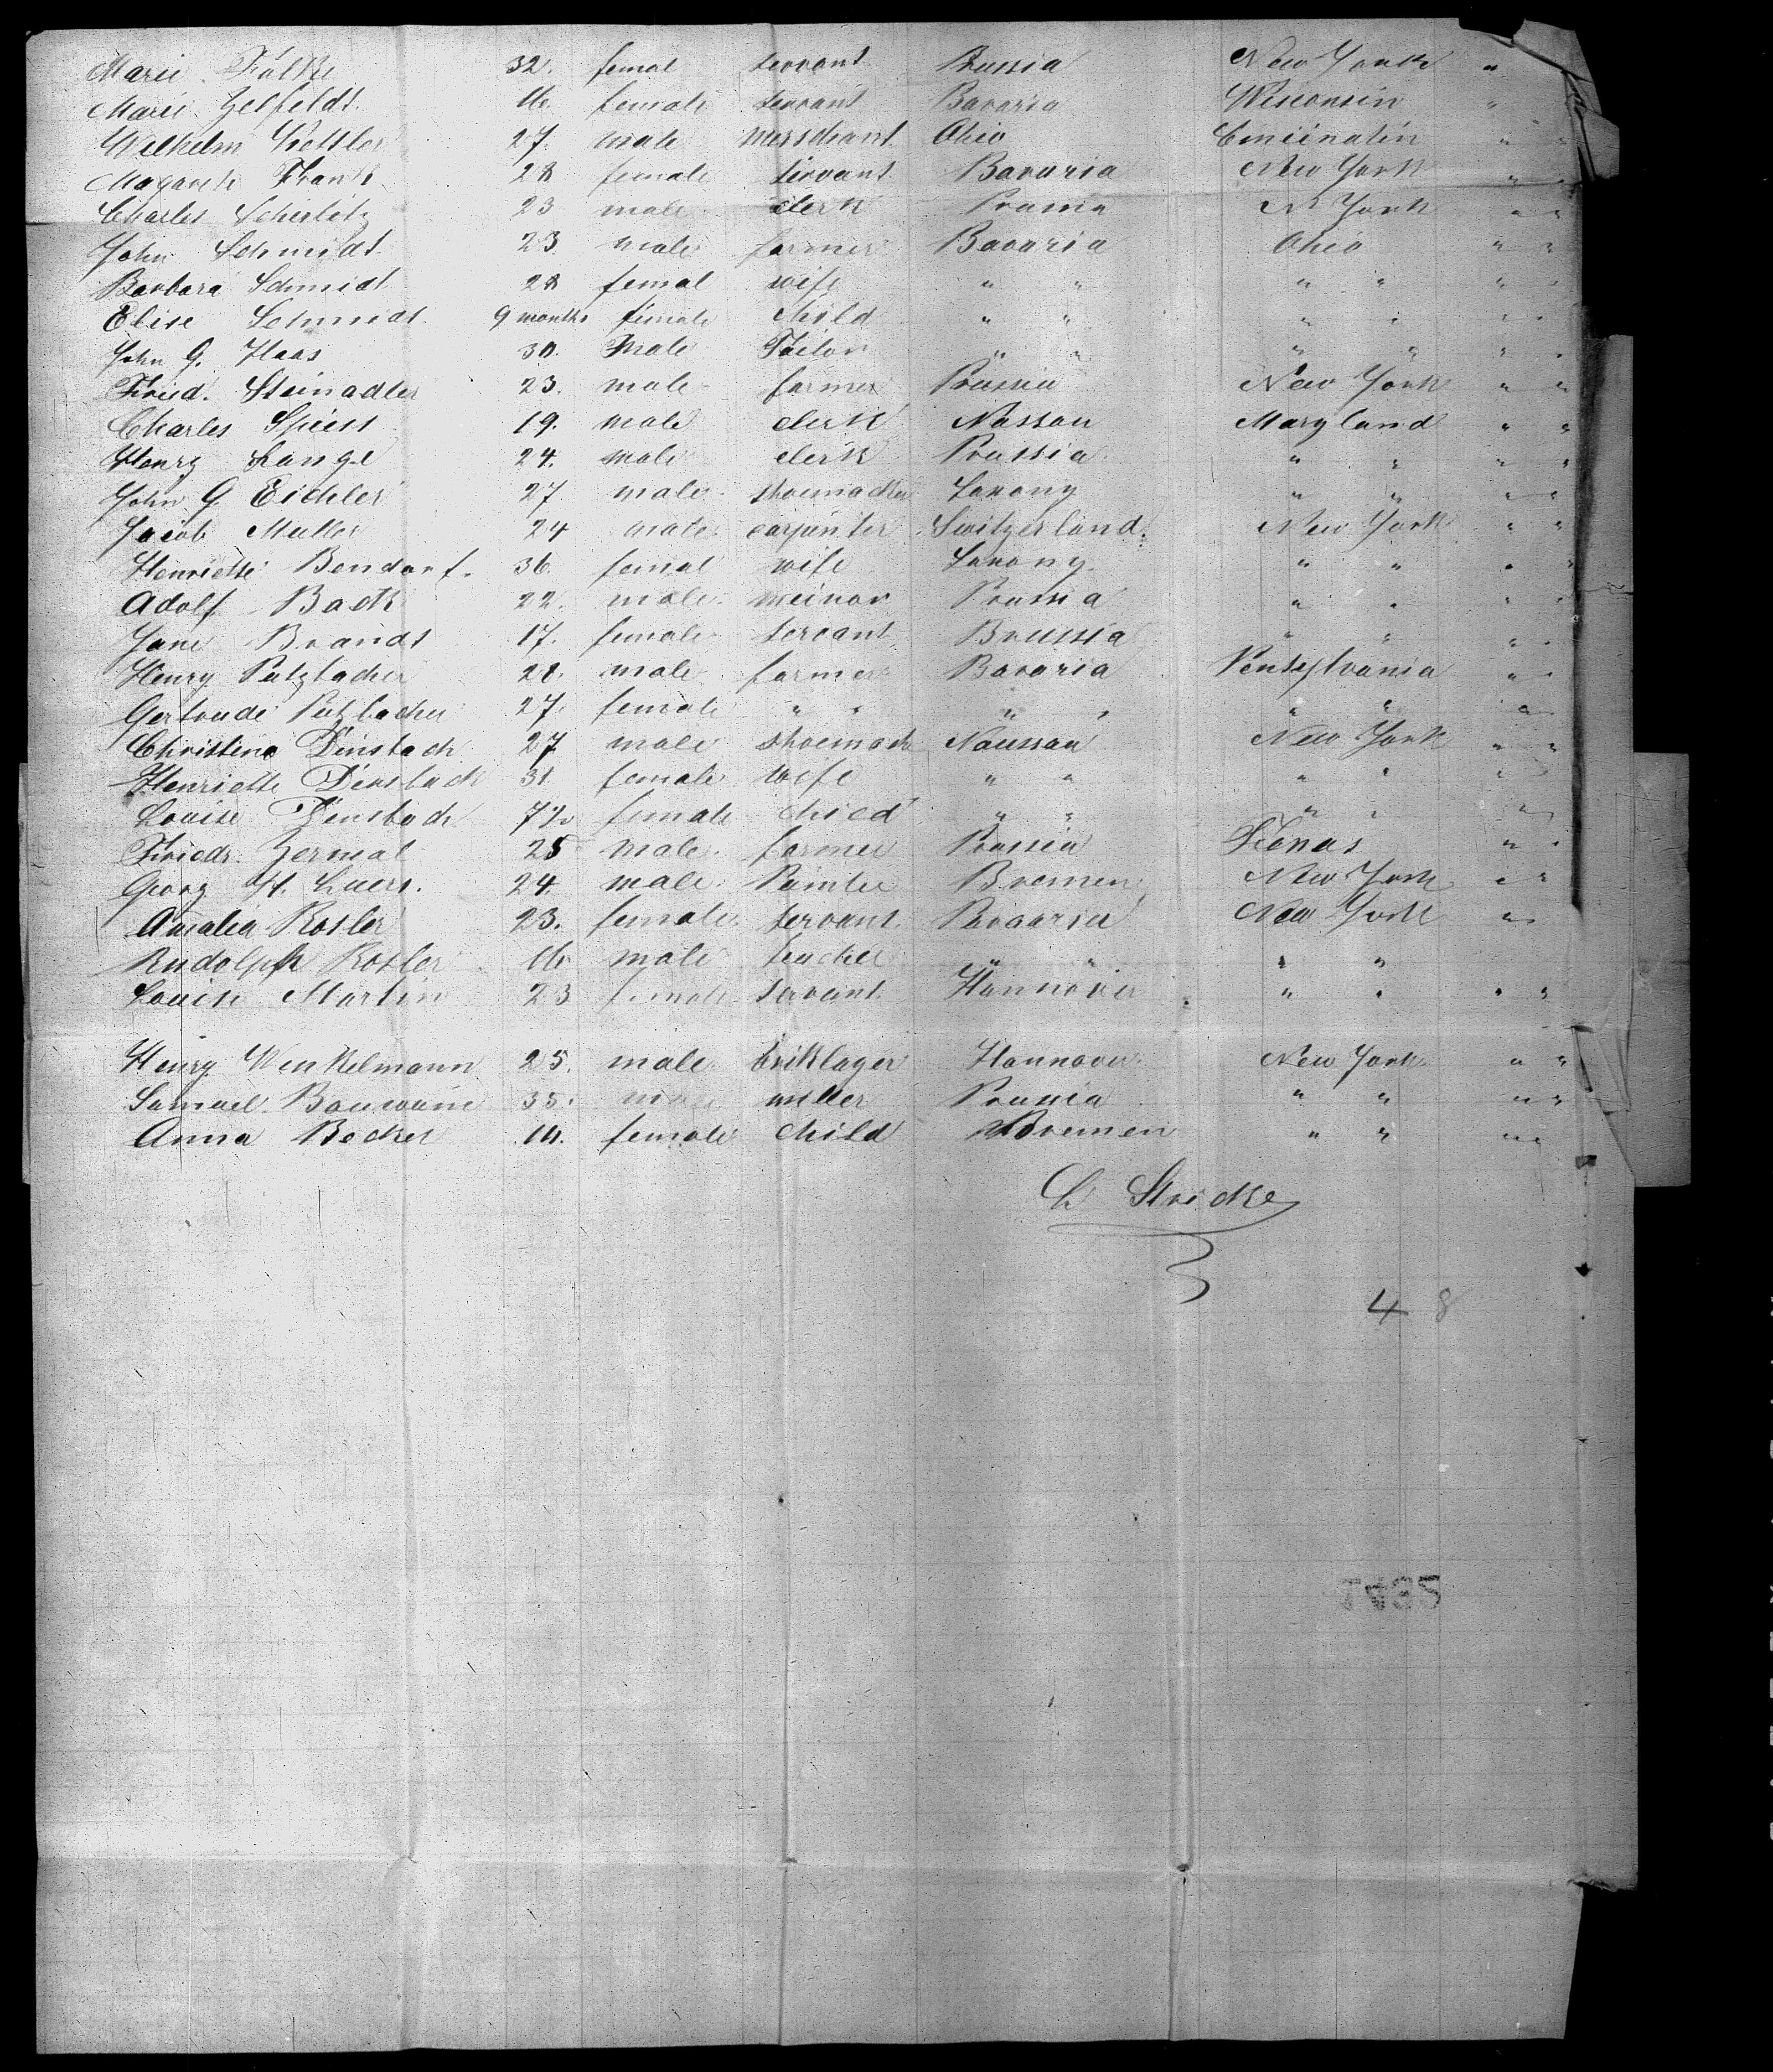 Marie Falke 32. femal servant Prussia New York "
Marie Zelfeldt. 16. female servant Bavaria Wisconsin "
Wilhelm Kottler 27. male merschant Ohio Cincinatin " "
Magareth Frank 28 female servant Bavaria New York " "
Charles Schirlitz 23 male clerk Prussia N York " "
John Schmidt. 23. male farmer Bavaria Ohio " "
Barbara Schmidt 28 femal wife " " " " " "
Elise Schmidt. 9 months female child " " " " " "
John G. Haas 30. Male Tailor " " " " " "
Fried. Steinadler 23. male farmer Prussia New York " "
Charles Spiess 19. male clerk Nassau Maryland " "
Henry Lange 24. male clerk Prussia " " " "
John G. Eichler 27 male shoemacher Saxony " " " "
Jacob Muller 24 male carpenter Switzerland. New York " "
Henriette Bendorf. 36. femal wife Saxony. " " " "
Adolf Back 22. male Prussia " " " "
Jane Brandt 17. female servant Brussia " " " "
Henry Putzbacher 28. male farmer Bavaria Pensylvania " "
Gertrude Putzbacher 27. female " " " " " " "
Christine Dinstach 27 male shoemach Naussau New York " "
Henriette Dinstach 31. female wife " " " " " "
Louise Dinstach female chied " " " " "
Friedr. Zermal 25 male. farmer Prussia Texas " "
Georg H. Luers. 24. male Painter Bremen New York " "
Amalia Rosler 23. female servant. Bavaaria New York "
Rudolph Rosler 16 male teacher " " " "
Louise Martin 23 female servant. Hannover " " " "
Henry Wenkelmann 25. male briklager Hannover. New York. " "
Samuel 35. male miller Prussia " " " "
Anna Becker 14. female child Bremen " " " "
L Stricke
4 8